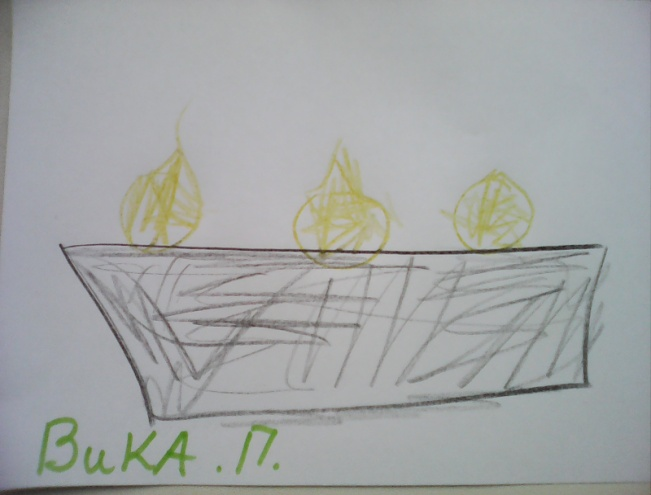 ВиКА.П.